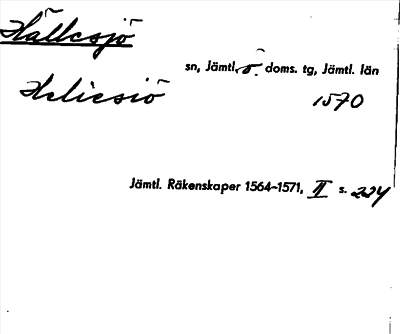 Hällesjö
sn, Jämtl. ö. doms. tg, Jämtl. län
Heliesiö 1570
Jämtl. Räkenskaper 1564-1571, II s. 224